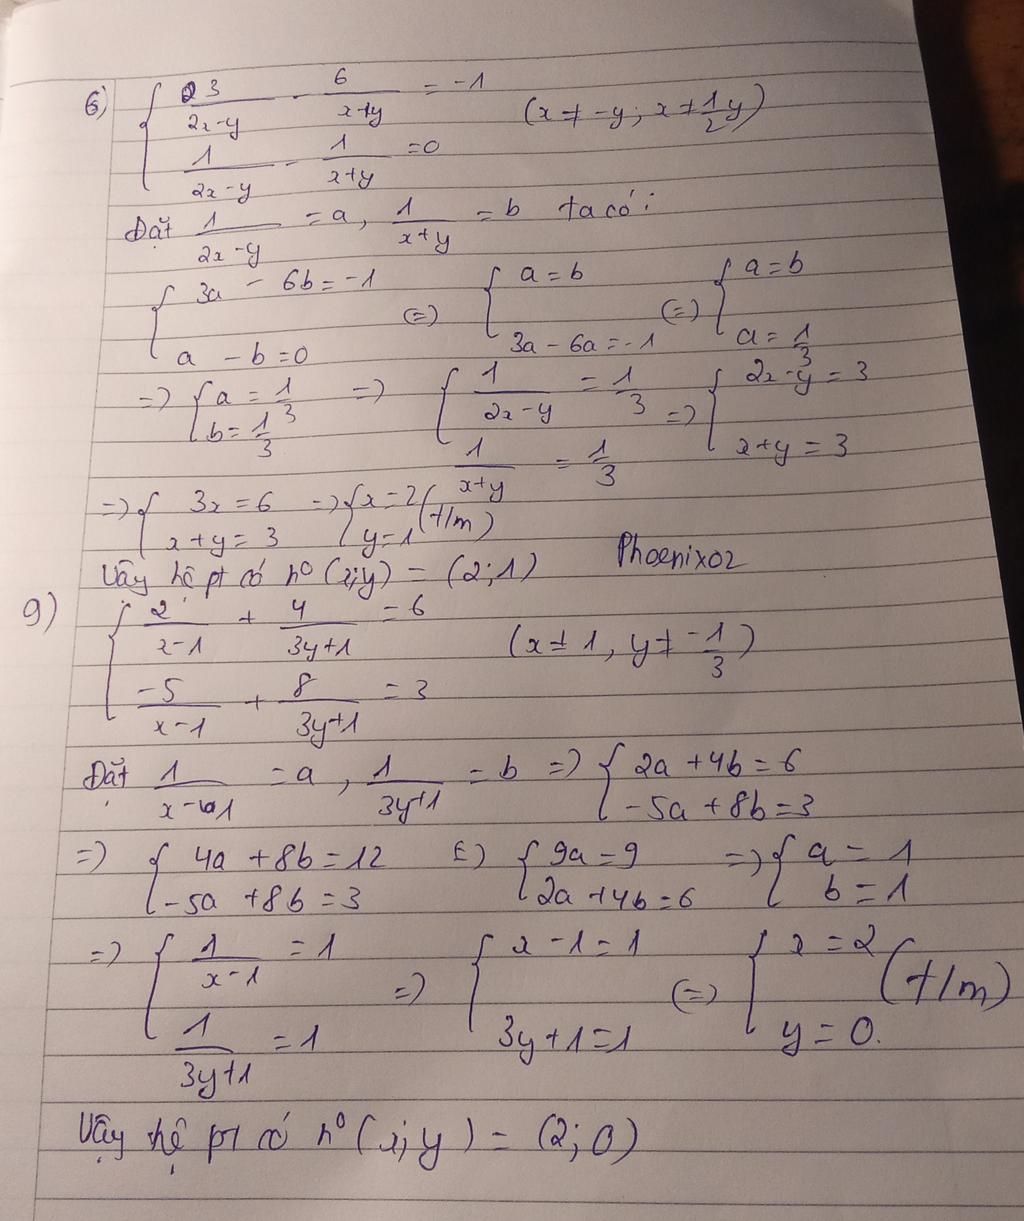 6) { 3/(2x-y) - 6/(x+y) = -1 (x ≠ -y; x ≠ 1/2 y)
{ 1/(2x-y) - 1/(x+y) = 0
Đặt 1/(2x-y) = a, 1/(x+y) = b ta có:
{ 3a - 6b = -1 ; a - b = 0 (=) { a = b ; 3a - 6a = -1 (=) { a = b ; a = 1/3
=> { a = 1/3 ; b = 1/3 => { 1/(2x-y) = 1/3 ; 1/(x+y) = 1/3 => { 2x-y = 3 ; x+y = 3
=> { 3x = 6 ; x+y = 3 => { x = 2 ; y = 1 (t/m)
Vậy hệ pt có n⁰ (x;y) = (2;1) Phoenix02
9) { 2/(x-1) + 4/(3y+1) = 6 (x ≠ 1, y ≠ -1/3)
{ -5/(x-1) + 8/(3y+1) = 3
Đặt 1/(x-1) = a, 1/(3y+1) = b => { 2a + 4b = 6 ; -5a + 8b = 3
=> { 4a + 8b = 12 ; -5a + 8b = 3 (=) { 9a = 9 ; 2a + 4b = 6 => { a = 1 ; b = 1
=> { 1/(x-1) = 1 ; 1/(3y+1) = 1 => { x - 1 = 1 ; 3y + 1 = 1 (=) { x = 2 ; y = 0. (t/m)
Vậy hệ pt có n⁰ (x;y) = (2;0)